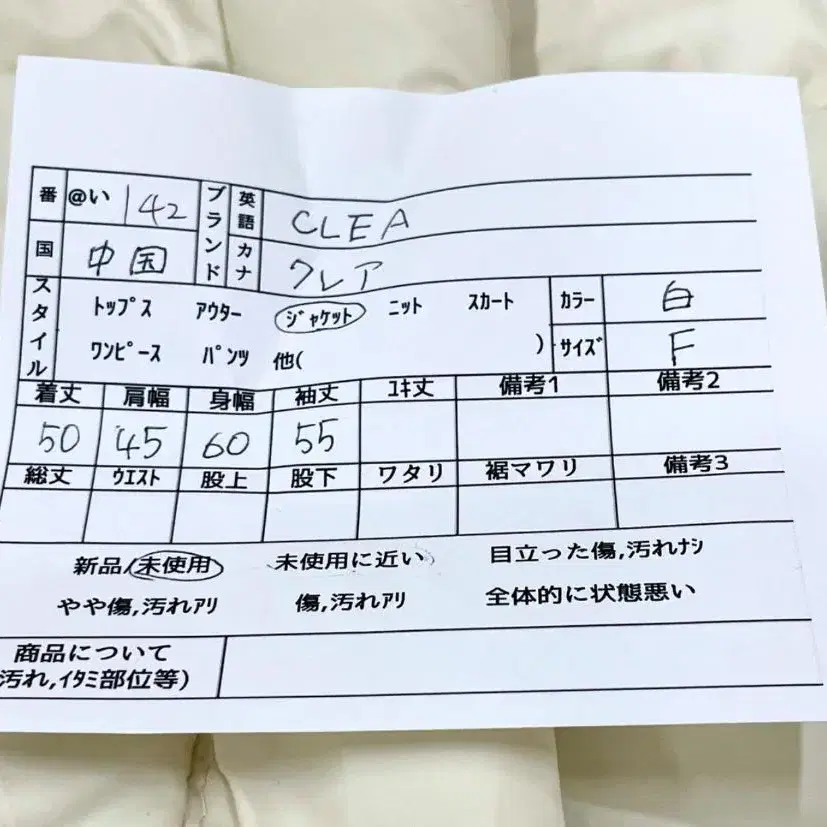 番 @い 142 ブランド 英語 CLEA
国 中国 カナ クレア
スタイル トップス アウター ジャケット ニット スカート カラー 白
ワンピース パンツ 他( ) サイズ F
着丈 肩幅 身幅 袖丈 ユキ丈 備考1 備考2
50 45 60 55
総丈 ウエスト 股上 股下 ワタリ 裾マワリ 備考3
新品/未使用 未使用に近い 目立った傷,汚れナシ
やや傷,汚れアリ 傷,汚れアリ 全体的に状態悪い
商品について
汚れ,イタミ部位等)